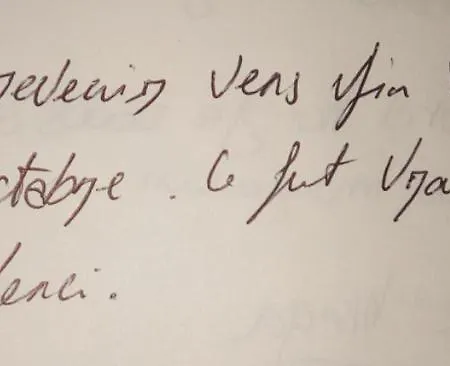 revenir vers fin
ctobre. Ce fut vra
erci.